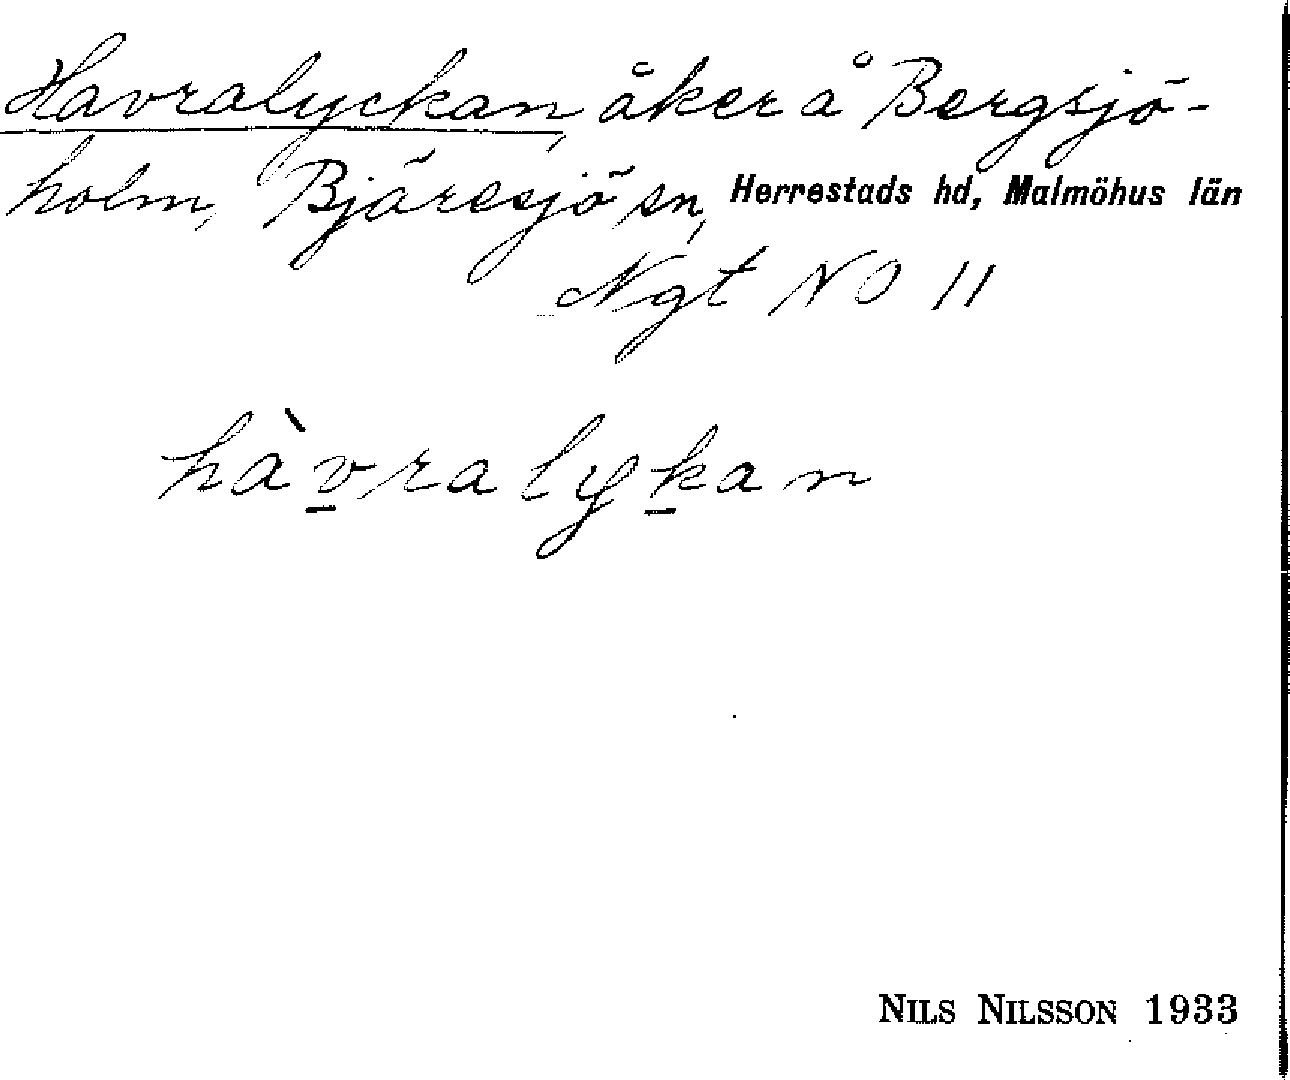 Havralyckan, åker å Bergsjö-
holm, Bjäresjö sn, Herrestads hd, Malmöhus län
Ngt NO 11
hàvralykan
NILS NILSSON 1933